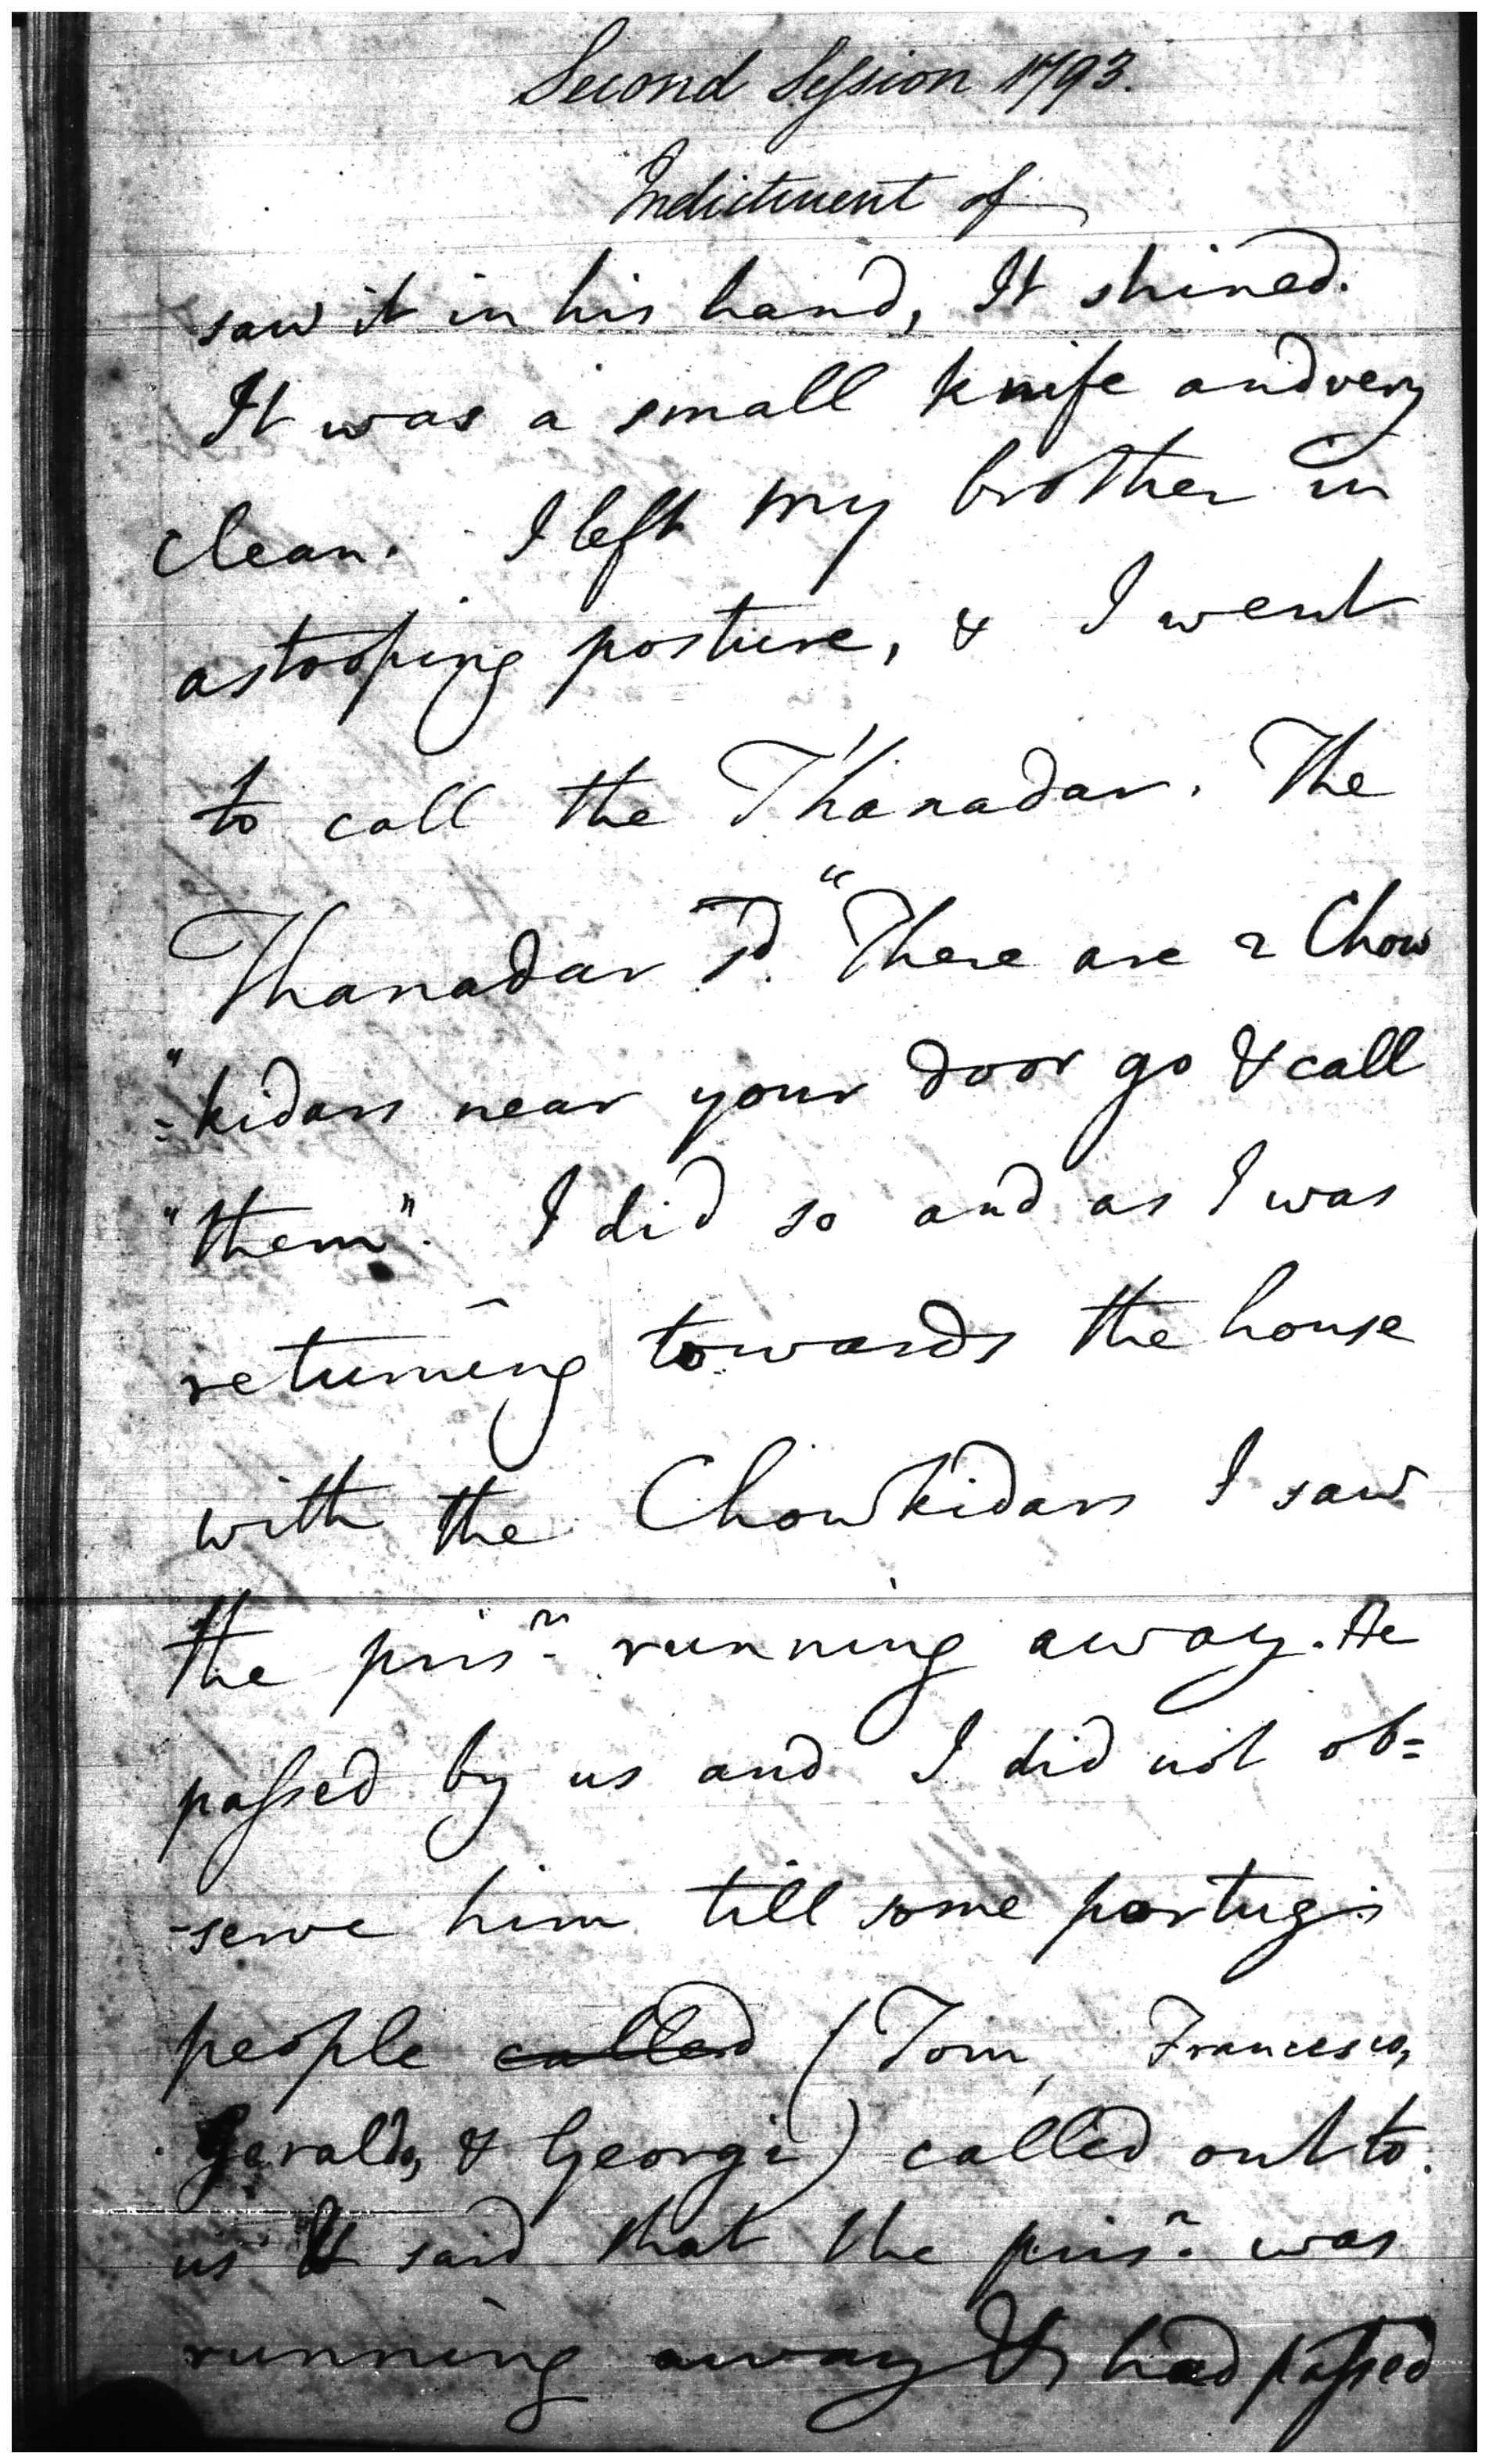 Second Session 1793.
Indictment of
saw it in his hand, It shined.
It was a small knife and very
clean. I left my brother in
a stooping posture, & I went
to call the Thanadar. The
Thanadar sd. "There are 2 Chow
"=kidars near your door go & call
"them". I did so and as I was
returning towards the house
with the Chowkidars I saw
the prisr. running away. He
passed by us and I did not ob=
-serve him till some portugis
people called (Tom, Francesco,
Geraldo, & Georgi) called out to
us & said that the prisr. was
running away & had passed